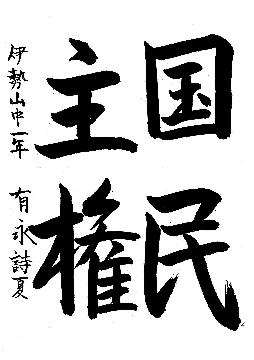 国民
主権
伊勢山中一年 有永詩夏